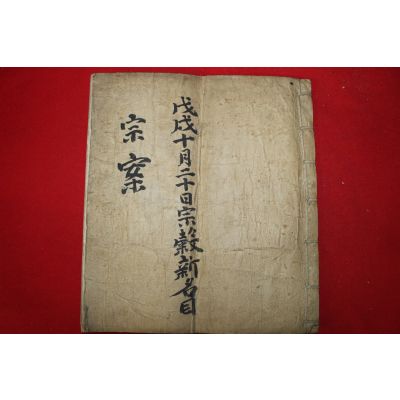 戊戌十月二十日宗穀新名目
宗案